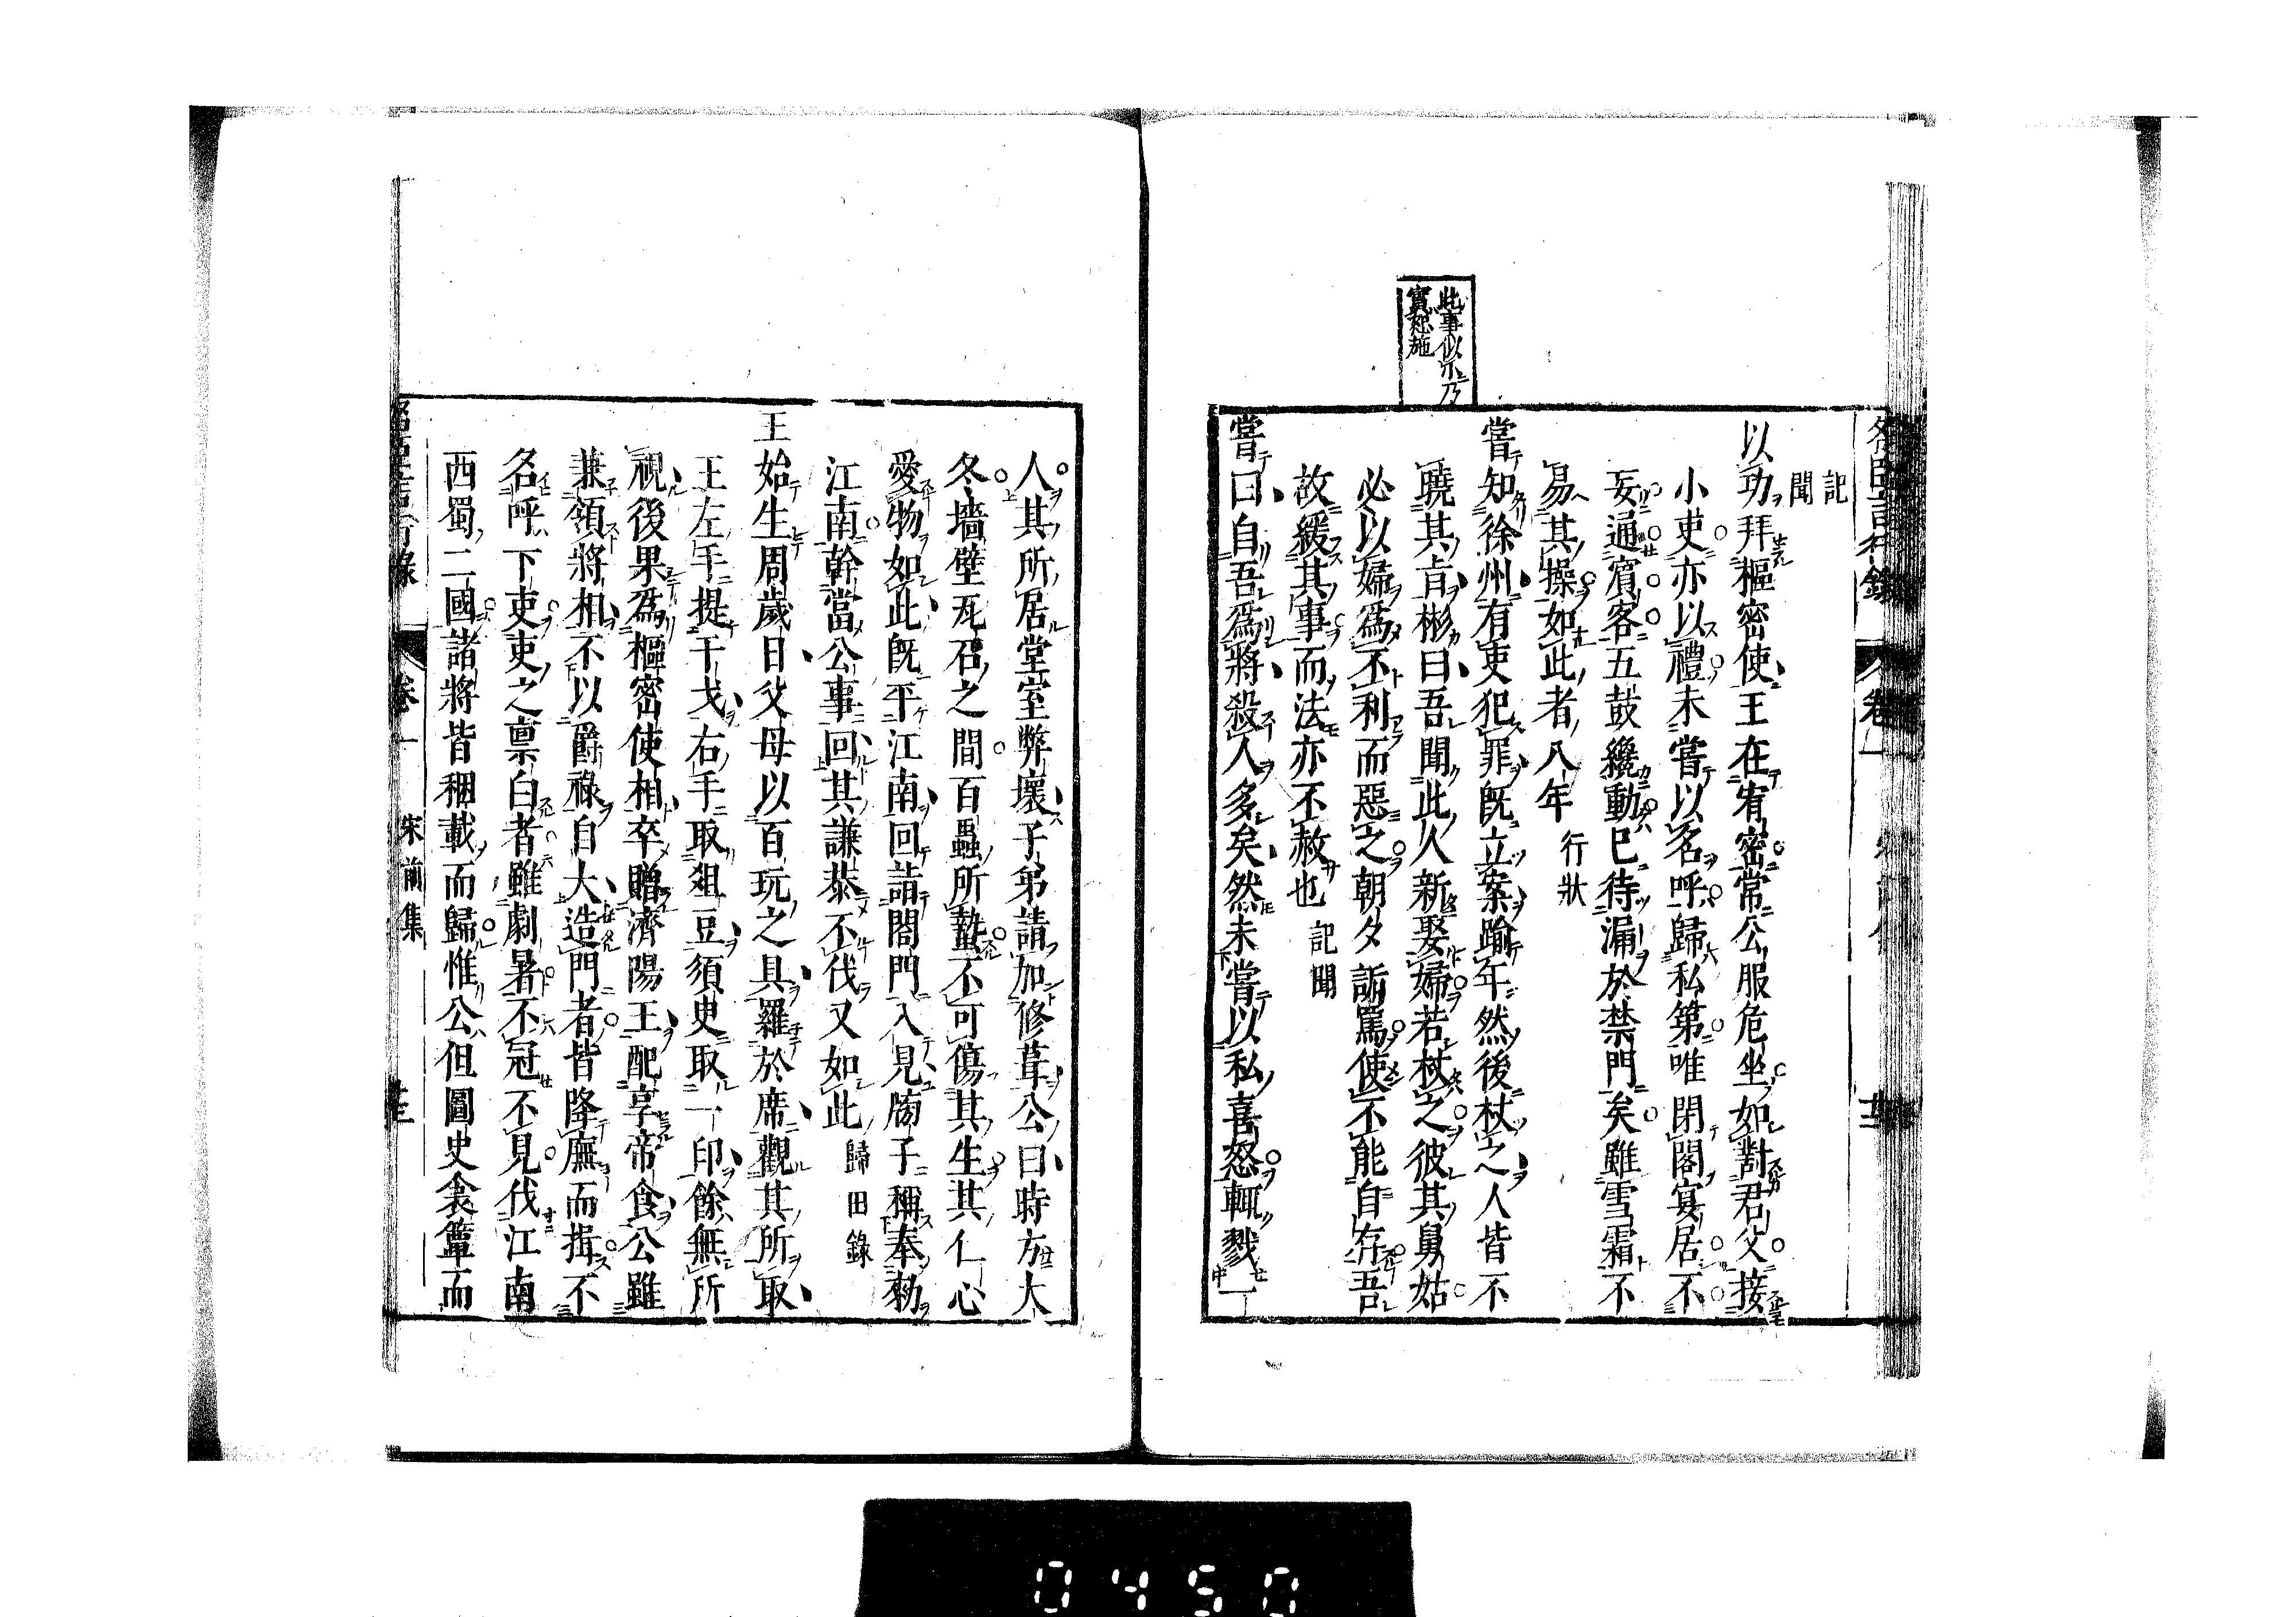 名臣言行録 卷一
記聞
以功拜樞密使王在宥密常公服危坐如對君父接
小吏亦以禮未嘗以名呼歸私第唯閉閤宴居不
妄通賓客五鼓纔動已待漏於禁門矣雖雪霜不
易其操如此者八年 行狀
嘗知徐州有吏犯罪既立案踰年然後杖之人皆不
曉其㫖彬曰吾聞此人新娶婦若杖之彼其舅姑
必以婦爲不利而惡之朝夕詬罵使不能自存吾
故緩其事而法亦不赦也 記聞
嘗曰自吾爲將殺人多矣然未嘗以私喜怒輒戮一
此事似小乃
寔
人其所居堂室弊壞子弟請加修葺公曰時方大
冬墻壁瓦石之間百蟲所蟄不可傷其生其仁心
愛物如此既平江南回詣閤門入見牓子稱奉勑
江南幹當公事回其謙恭不伐又如此 歸田錄
王始生周歲日父母以百玩之具羅於席觀其所取
王左手提干戈右手取俎豆須臾取一印餘無所
視後果爲樞密使相卒贈濟陽王配享帝食公雖
兼領將相不以爵祿自大造門者皆降廡而揖不
名呼下吏吏之禀白者雖劇暑不冠不見伐江南
西蜀二國諸將皆稛載而歸惟公但圖史衾簟而
卷一 宋前集